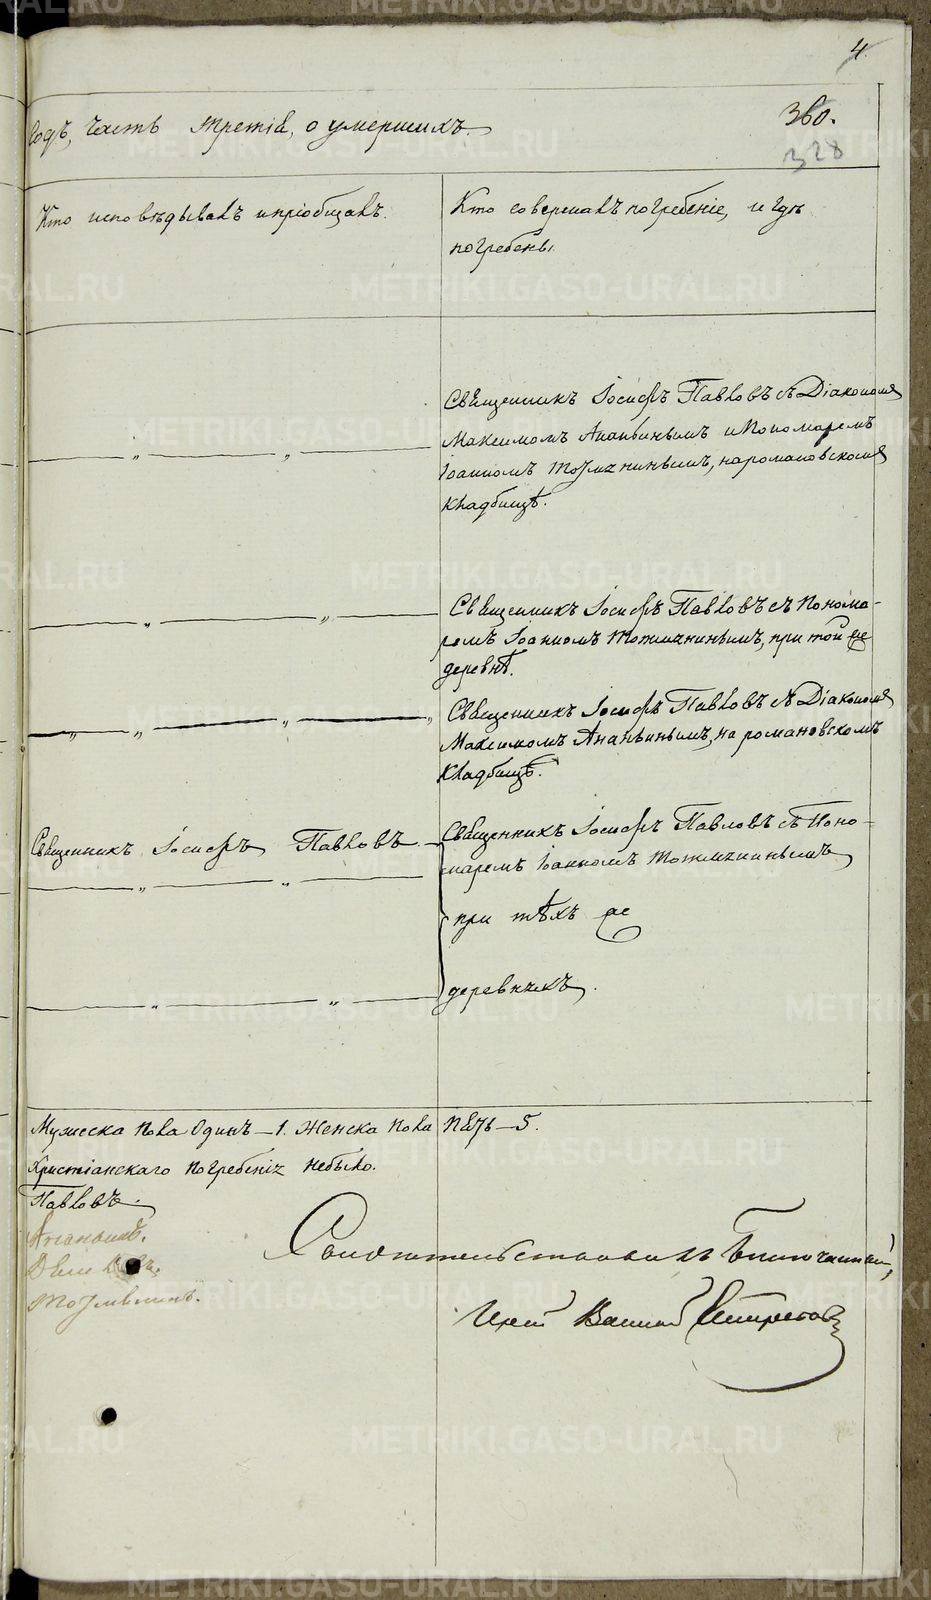 4.
360.
328
годъ, часть третія, о умершихъ.
Кто исповѣдывалъ и пріобщалъ.
Кто совершалъ погребеніе, и гдѣ
погребены.
Священникъ Іосифъ Павловъ съ Діакономъ
Максимомъ Ананьинымъ и Пономаремъ
Іоанномъ на романовскомъ
кладбищѣ.
Священникъ Іосифъ Павловъ съ Понома-
ремъ Іоанномъ при той же
деревнѣ.
Священникъ Іосифъ Павловъ съ Діакономъ
Максимомъ Ананьинымъ, на романовскомъ
кладбищѣ.
Священникъ Іосифъ Павловъ.
Священникъ Іосифъ Павловъ съ Поно-
маремъ Іоанномъ
при тѣхъ же
деревняхъ.
Мужеска пола Одинъ – 1. Женска пола пять – 5.
Христіанскаго погребенія небыло.
Павловъ.
Ананьинъ.
Свидѣтельствовалъ Благочинный,
Іерей Василій
METRIKI.GASO-URAL.RU